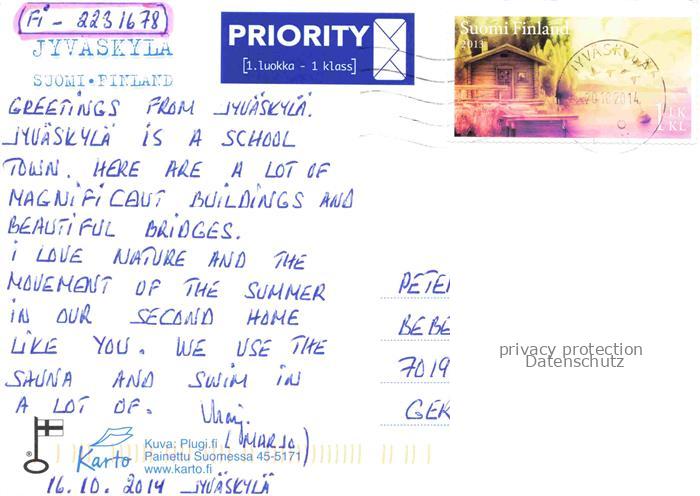 FI - 2231678
JYVÄSKYLÄ
SUOMI • FINLAND
PRIORITY
[1.luokka - 1 klass]
Suomi Finland
2013
JYVÄSKYLÄ
20.10.2014
1 LK
1 KL
GREETINGS FROM JYVÄSKYLÄ.
JYVÄSKYLÄ IS A SCHOOL
TOWN. HERE ARE A LOT OF
MAGNIFICAUT BUILDINGS AND
BEAUTIFUL BRIDGES.
I LOVE NATURE AND THE
MOVEMENT OF THE SUMMER
IN OUR SECOND HOME
LIKE YOU. WE USE THE
SAUNA AND SWIM IN
A LOT OF.
(MARJO)
PETE
BEBE
7019
GER
privacy protection
Datenschutz
Karto
Kuva: Plugi.fi
Painettu Suomessa 45-5171
www.karto.fi
16.10.2014 JYVÄSKYLÄ